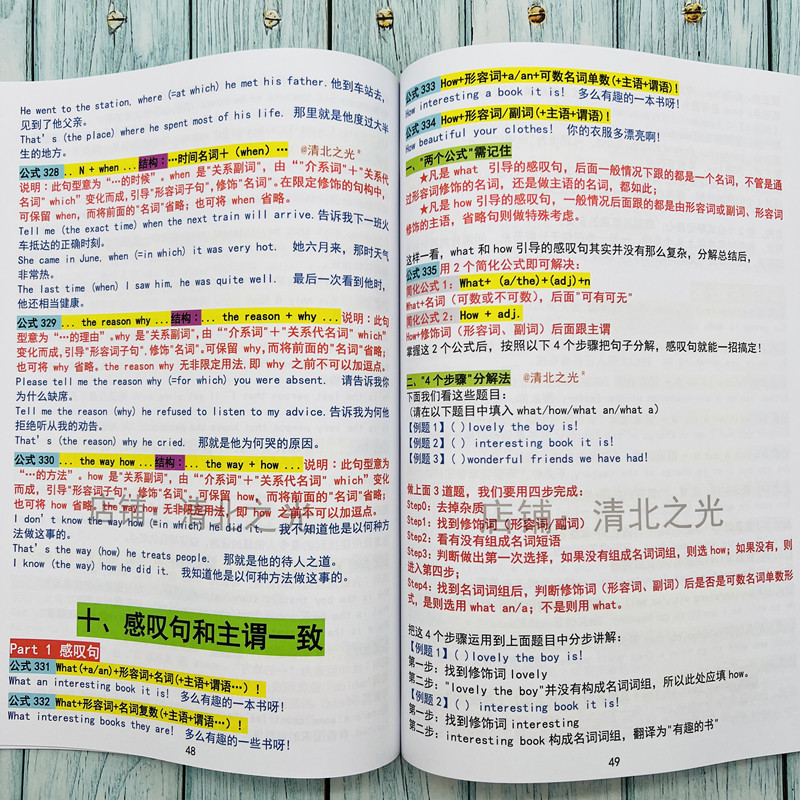 He went to the station, where (=at which) he met his father. 他到车站去,
见到了他父亲。
That's (the place) where he spent most of his life. 那里就是他度过大半
生的地方。
@清北之光*
公式 328 .. N + when ... 结构: …时间名词+ (when) …
说明: 此句型意为 "…的时候"。when 是"关系副词", 由 ""介词词"+"关系代
名词" which" 变化而成, 引导"形容词子句", 修饰"名词"。在限定修饰的句构中,
可保留 when, 而将前面的"名词"省略; 也可将 when 省略。
Tell me (the exact time) when the next train will arrive. 告诉我下一班火
车抵达的正确时刻。
She came in June, when (=in which) it was very hot. 她六月来, 那时天气
非常热。
The last time (when) I saw him, he was quite well. 最后一次看到他时,
他还相当健康。
公式 329 ... the reason why ... 结构: ... the reason + why ... 说明: 此句
型意为 "…的理由"。why 是"关系副词", 由 ""介系词"+"关系代名词" which"
变化而成, 引导"形容词子句", 修饰"名词"。可保留 why, 而将前面的"名词"省略;
也可将 why 省略。the reason why 无非限定用法, 即 why 之前不可以加逗点。
Please tell me the reason why (=for which) you were absent. 请告诉我你
为什么缺席。
Tell me the reason (why) he refused to listen to my advice. 告诉我为何他
拒绝听从我的劝告。
That's (the reason) why he cried. 那就是他为何哭的原因。
公式 330 ... the way how ... 结构: ... the way + how ... 说明: 此句型意为
"…的方法"。how 是"关系副词", 由 ""介系词"+"关系代名词" which" 变化
而成, 引导"形容词子句", 修饰"名词"。可保留 how, 而将前面的"名词"省略;
也可将 how 省略。the way how 无非限定用法, 即 how 之前不可以加逗点。
店铺: 清北之光
I don't know the way how (=in which) he did it. 我不知道他是以何种方
法做这事的。
That's the way (how) he treats people. 那就是他的待人之道。
I know (the way) how he did it. 我知道他是以何种方法做这事的。
十、感叹句和主谓一致
Part 1 感叹句
公式 331 What(+a/an)+形容词+名词(+主语+谓语…) !
What an interesting book it is! 多么有趣的一本书呀!
公式 332 What+形容词+名词复数(+主语+谓语…) !
What interesting books they are! 多么有趣的一些书呀!
48
公式 333 How+形容词+a/an+可数名词单数(+主语+谓语) !
How interesting a book it is! 多么有趣的一本书呀!
公式 334 How+形容词/副词(+主语+谓语) !
How beautiful your clothes! 你的衣服多漂亮啊!
一、"两个公式"需记住
★凡是 what 引导的感叹句, 后面一般情况下跟的都是一个名词, 不管是通
过形容词修饰的名词, 还是做主语的名词, 都如此;
★凡是 how 引导的感叹句, 一般情况后面跟的都是由形容词或副词、形容词
修饰的主语, 省略句则做特殊考虑。
这样一看, what 和 how 引导的感叹句其实并没有那么复杂, 分解总结后,
公式 335 用 2 个简化公式即可解决:
简化公式 1: What+ (a/the)+(adj)+n
What+名词 (可数或不可数), 后面"可有可无"
简化公式 2: How + adj.
How+修饰词 (形容词、副词) 后面跟主谓
掌握这 2 个公式后, 按照以下 4 个步骤把句子分解, 感叹句就能一招搞定!
二、"4 个步骤"分解法 @清北之光*
下面我们看这些题目:
(请在以下题目中填入 what/how/what an/what a)
【例题 1】( )lovely the boy is!
【例题 2】( ) interesting book it is!
【例题 3】( )wonderful friends we have had!
做上面 3 道题, 我们要用四步完成:
店铺: 清北之光
Step0: 去掉杂质
Step1: 找到修饰词 (形容词/副词)
Step2: 看有没有组成名词短语
Step3: 判断做出第一次选择, 如果没有组成名词词组, 则选 how; 如果有, 则
进入第四步;
Step4: 找到名词词组后, 判断修饰词 (形容词、副词) 后是否是可数名词单数形
式, 是则选用 what an/a; 不是则用 what。
把这 4 个步骤运用到上面题目中分步讲解:
【例题 1】( )lovely the boy is!
第一步: 找到修饰词 lovely
第二步: "lovely the boy"并没有构成名词词组, 所以此处应填 how。
【例题 2】( ) interesting book it is!
第一步: 找到修饰词 interesting
第二步: interesting book 构成名词词组, 翻译为"有趣的书"
49